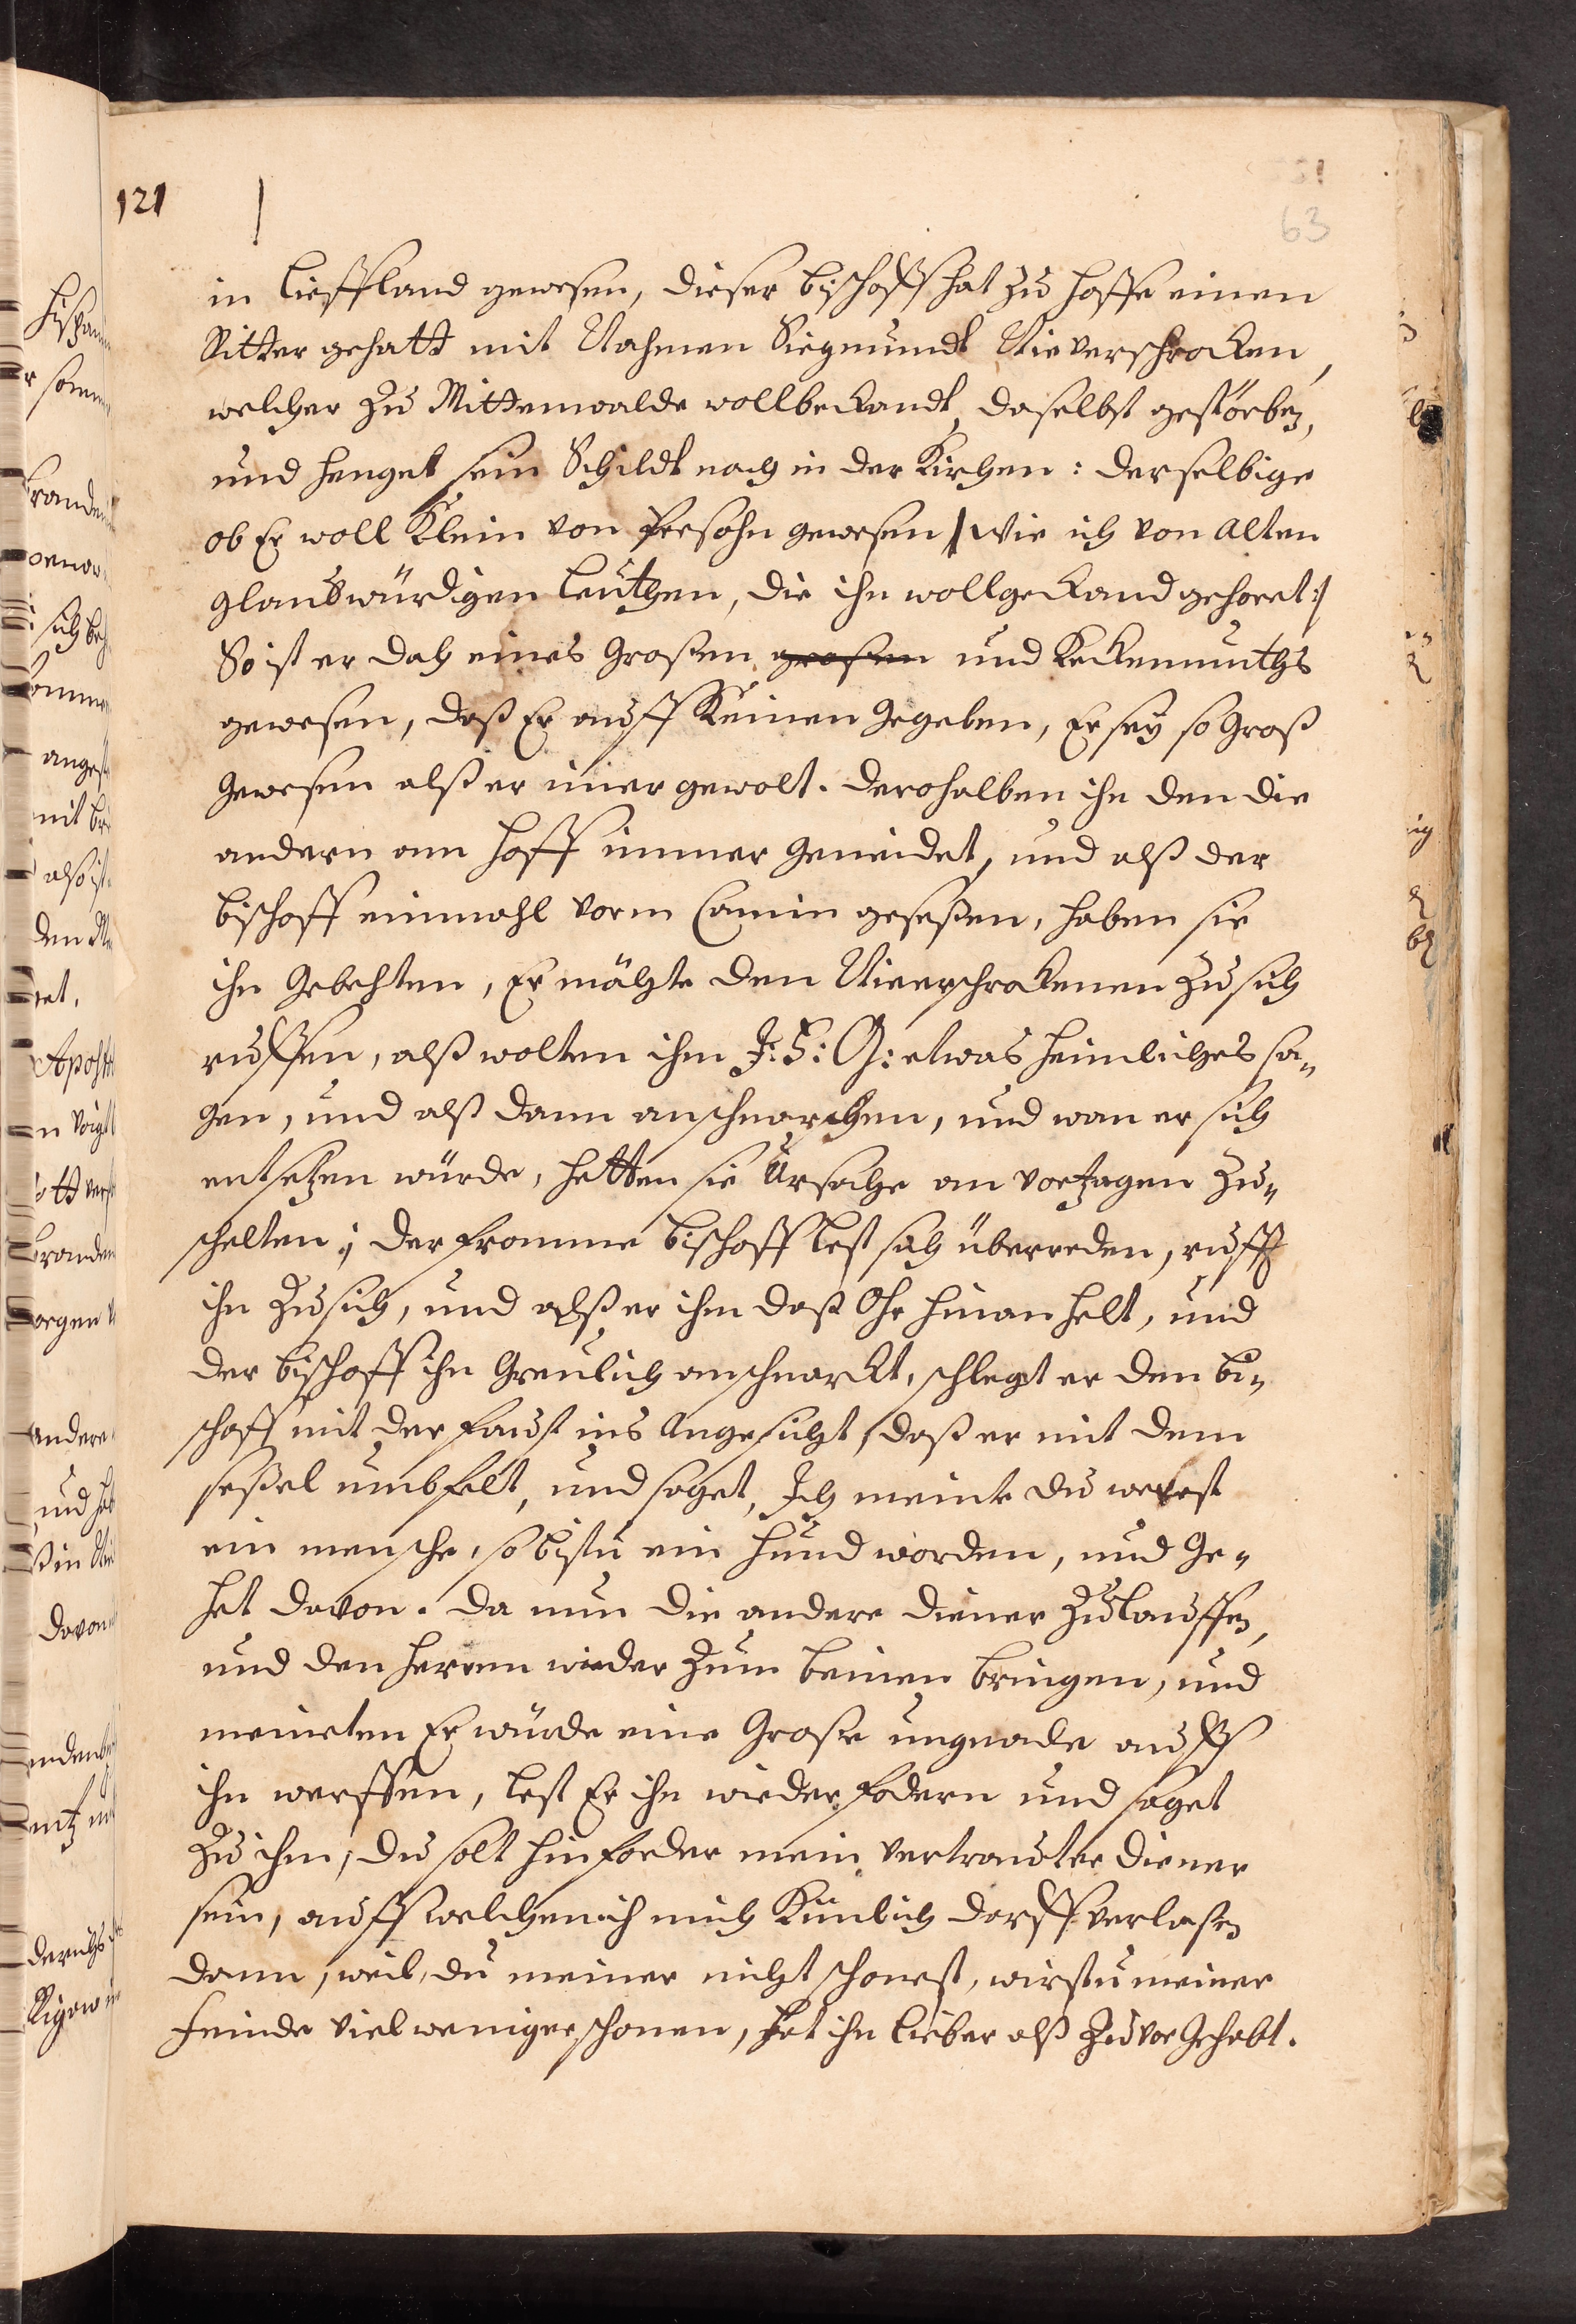 121
63
in Liefflandt gewesen, dieser Bischoff hat zu Hoffe einen
Ritter gehatt mit Nahmen Siegmundt Nieverschrocken,
welcher zu Mittenwalde wollbekandt, daselbst gestorben,
und henget sein Schildt noch in der Kirchen: derselbige
ob Er woll Klein von Persohn gewesen |: wie ich von Alten
glaubwürdigen Leuthen, die ihn wollgekand gehoret :|
So ist er doch eines Großen großen und Keckenmuths
gewesen, daß Er auff Keinen gegeben, Er sey so Groß
gewesen alß er imer gewolt. Derohalben ihn den die
andern am Hoff immer geneidet, und alß der
Bischoff einmahl vorm Camin geseßen, haben sie
ihn gebehten, Er möchte den Nieerschrockenen zu sich
ruffen, alß wolten ihm J: F: G: etwas heimliches sa-
gen, und alß dann anschnarchen, und wan er sich
entsetzen würde, hetten sie Ursache an vorzagen zu-
schelten; der fromme Bischoff lest sich überreden, rufft
ihn zu sich, und alß er ihm daß Ohr hinan helt, und
der Bischoff ihn Greulich anschnarckt, schlegt er den Bi-
schoff mit der Faust ins Angesicht, daß er mit dem
seßel umbfelt, und saget, Ich meinte du werest
ein mensche, so bistu ein Hund worden, und Ge-
het davon. Da nun die andere Diener zulauffen,
und den Herren wieder zum beinen bringen, und
meineten Er würde eine Große ungnade auff
ihn werffen, lest Er ihn wieder fodern und saget
zu ihm, du solt hinforder mein vertrauter Diener
sein, auff welchen ich mich Künlich darff verlaßen
dann, weil du meiner nicht schonest, wirstu meiner
Feinde viel weniger schonen, Hat ihn lieber alß zuvor Gehabt.